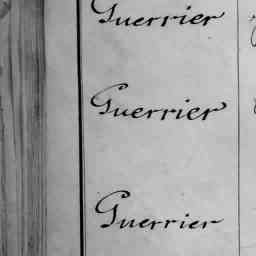 Guerrier
Guerrier
Guerrier